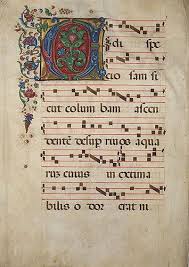 Vidi spe
cio sam si
cut colum bam ascen
dentē desup riuos aqua
ruz cuius in extima
bilis o dor erat ni